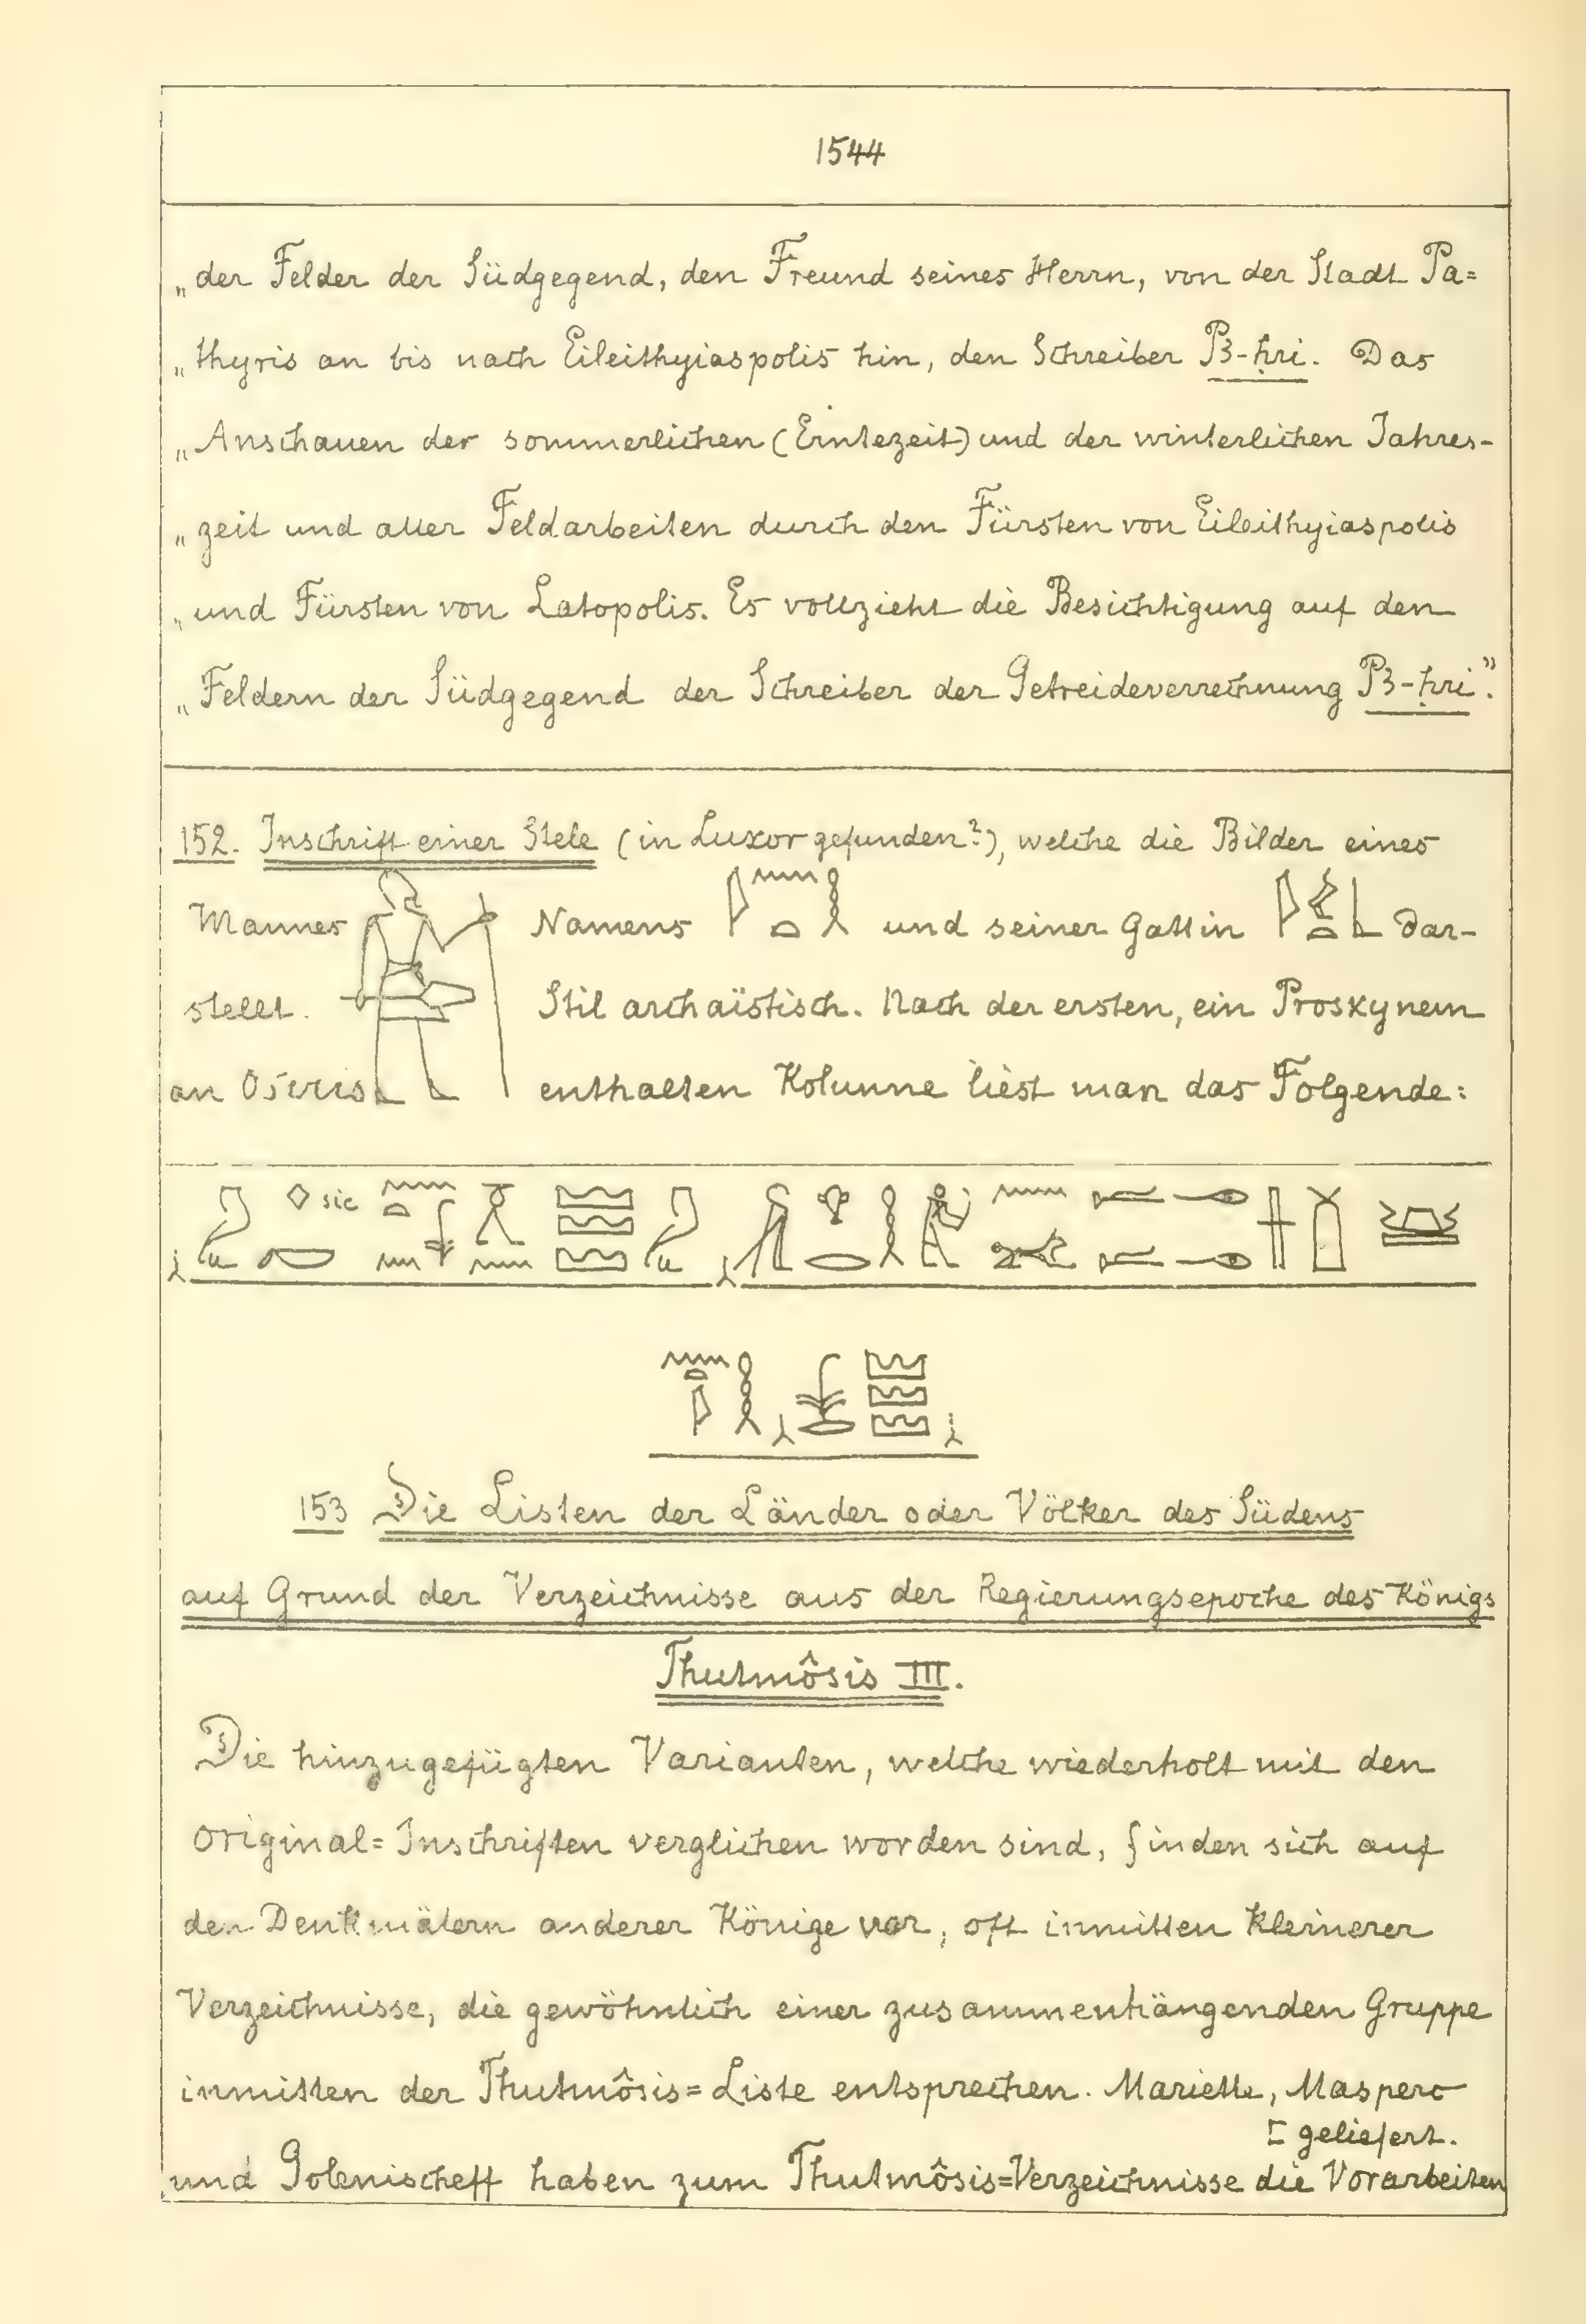 1544
„der Felder der Südgegend, den Freund seines Herrn, von der Stadt Pa=
„thyris an bis nach Eileithyiaspolis hin, den Schreiber P3-ḥri. Das
„Anschauen der sommerlichen (Erntezeit) und der winterlichen Jahres-
„zeit und aller Feldarbeiten durch den Fürsten von Eileithyiaspolis
„und Fürsten von Latopolis. Es vollzieht die Besichtigung auf den
„Feldern der Südgegend der Schreiber der Getreideverrechnung P3-ḥri".
152. Inschrift einer Stele (in Luxor gefunden?), welche die Bilder eines
Mannes Namens und seiner Gattin dar-
stellt. Stil archaïstisch. Nach der ersten, ein Proskynem
an Osiris enthalten Kolumne liest man das Folgende:
sic
153 Die Listen der Länder oder Völker des Südens
auf Grund der Verzeichnisse aus der Regierungsepoche des Königs
Thutmôsis III.
Die hinzugefügten Varianten, welche wiederholt mit den
Original=Inschriften verglichen worden sind, finden sich auf
den Denkmälern anderer Könige vor, oft inmitten kleinerer
Verzeichnisse, die gewöhnlich einer zusammenhängenden Gruppe
inmitten der Thutmôsis=Liste entsprechen. Mariette, Maspero
[geliefert.
und Golenischeff haben zum Thutmôsis=Verzeichnisse die Vorarbeiten